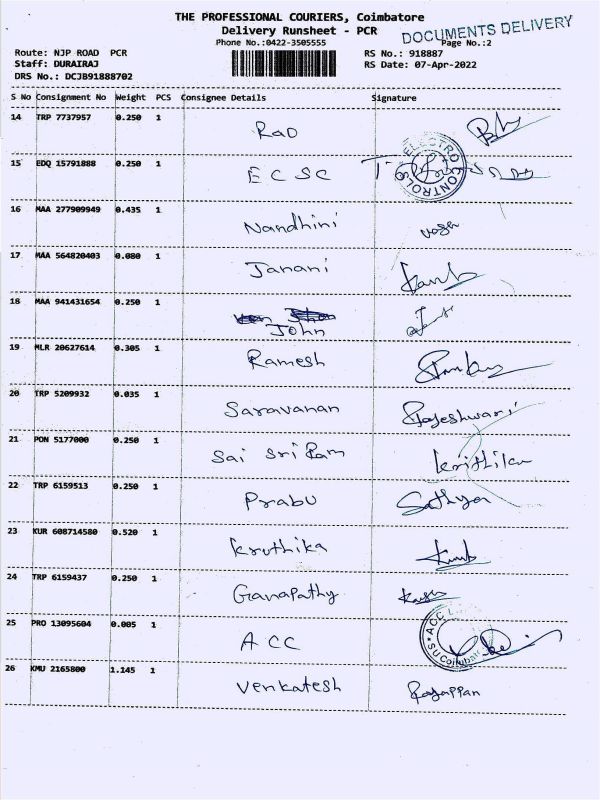 THE PROFESSIONAL COURIERS, Coimbatore
Delivery Runsheet - PCR
DOCUMENTS DELIVERY
Phone No.:0422-3505555
Page No.:2
Route: NJP ROAD PCR
RS No.: 918887
Staff: DURAIRAJ
RS Date: 07-Apr-2022
DRS No.: DCJB91888702
S No Consignment No Weight PCS Consignee Details Signature
14 TRP 7737957 0.250 1
Rao
15 EDQ 15791888 0.250 1
ECSC
ELECTRO CONTROLS
16 MAA 277909949 0.435 1
Nandhini
17 MAA 564820403 0.080 1
Janani
18 MAA 941431654 0.250 1
John
19 MLR 20627614 0.305 1
Ramesh
20 TRP 5209932 0.035 1
Saravanan Rajeshwari
21 PON 5177000 0.250 1
Sai Sri Ram Krithika
22 TRP 6159513 0.250 1
Prabu Sathya
23 KUR 608714580 0.520 1
Kruthika
24 TRP 6159437 0.250 1
Ganapathy
25 PRO 13095604 0.005 1
ACC
ACC
26 KMU 2165800 1.145 1
Venkatesh Rajappan